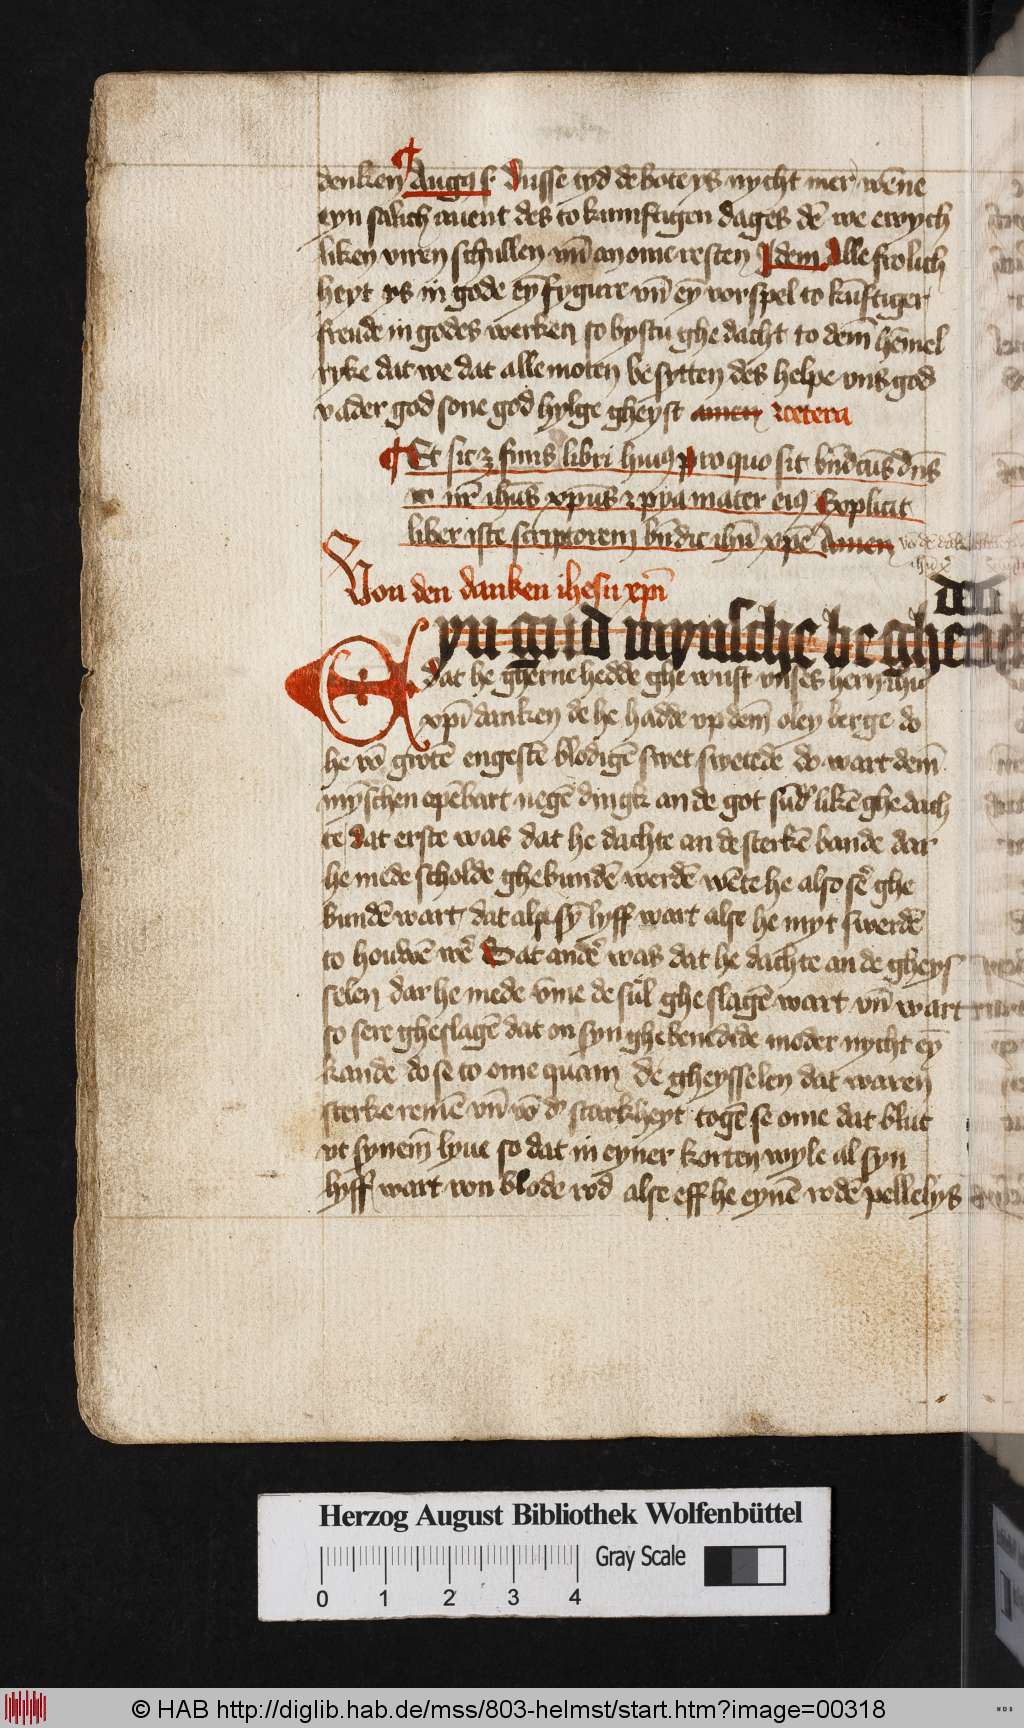 denken Augus. Dusse tyd de bote ys nycht mer wēne
eyn salich auent des to kumftigen dages dē we ewych
liken viren schullen vn̄ an ome resten Idem Alle frolich
heyt ys in gode eȳ fygure vn̄ eȳ vorspel to kūftiger
freude in godes werken so bystu ghe dacht to dem̄ hēmel
ryke dat we dat alle moten be sytten des helpe vns god
vader god sone god hylge gheyst amen et cetera
Et sic ꝫ finis libri huiꝯ pro quo sit bn̄dctūs dn̄s
nr̄e ihūs xpūs ⁊ pya mater eiꝯ Explicit
liber iste scriptorem bn̄dic ihū xpē Amen
Von den danken ihesu xpī
Eyn gud mynsche be gherde
dat he gherne hedde ghe wust vnses hern ihū
xpī danken de he hadde vp dem̄ oley berge do
he vō grotē engestē blodigē swet swetede do wart dem̄
mȳschen opēbart negē dingk an de got sūd'likē ghe dach
te dat erste was dat he dachte an de sterkē bande dar
he mede scholde ghe bundē werdē wēte he also sē ghe
bundē wart dat al sȳ lyff wart alse he myt swerdē
to houwē wē Dat andē was dat he dachte an de gheys
selen dar he mede v̄me de sul ghe slagē wart vn̄ wart
so sere gheslagē dat on syn ghe benedide moder nycht eȳ
kande do se to ome quam de gheysselen dat waren
sterke remē vn̄ vō d' starkheyt togē se ome dat blut
vt synem̄ lyue so dat in eyner korten wyle al syn
lyff wart von blode rod alse eff he eynē rodē pellelys
Herzog August Bibliothek Wolfenbüttel
Gray Scale
0 1 2 3 4
© HAB http://diglib.hab.de/mss/803-helmst/start.htm?image=00318